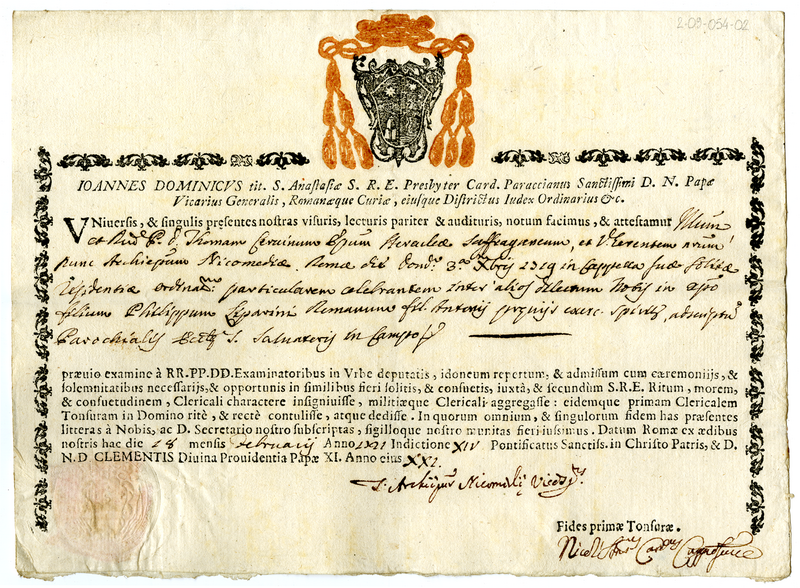 2-09-054-02
IOANNES DOMINICVS tit. S. Anastasiæ S. R. E. Presbyter Card. Paraccianus Sanctissimi D. N. Papæ
Vicarius Generalis, Romanæque Curiæ, eiusque Districtus Iudex Ordinarius &c.
VNiversis, & singulis presentes nostras visuris, lecturis pariter & audituris, notum facimus, & attestamur Illum
et Thomam Cervinum Epum Heracleæ Suffraganeum, et
nunc Archiepum Nicomediæ. Romæ die in Cappella suæ solitæ
residentiæ particularem celebrantem inter alios dilectum Nobis in
filium Philippum Romanum fil. Antonij
Parochialis S. Salvatoris in Campo
prævio examine à RR. PP. DD. Examinatoribus in Vrbe deputatis, idoneum repertum, & admissum cum cæremoniis, &
solemnitatibus necessarijs, & opportunis in similibus fieri solitis, & consuetis, iuxtà, & secundùm S. R. E. Ritum, morem,
& consuetudinem, Clericali charactere insigniuisse, militiæque Clericali aggregasse: eidemque primam Clericalem
Tonsuram in Domino ritè, & rectè contulisse, atque dedisse. In quorum omnium, & singulorum fidem has præsentes
litteras à Nobis, ac D. Secretario nostro subscriptas, sigilloque nostro munitas fieri iussimus. Datum Romæ ex ædibus
nostris hac die 18 mensis Februarij Anno 1721 Indictione XIV Pontificatus Sanctiss. in Christo Patris, & D.
N. D CLEMENTIS Diuina Prouidentia Papæ XI. Anno eius XXI.
Nicomediæ
Fides primæ Tonsuræ.